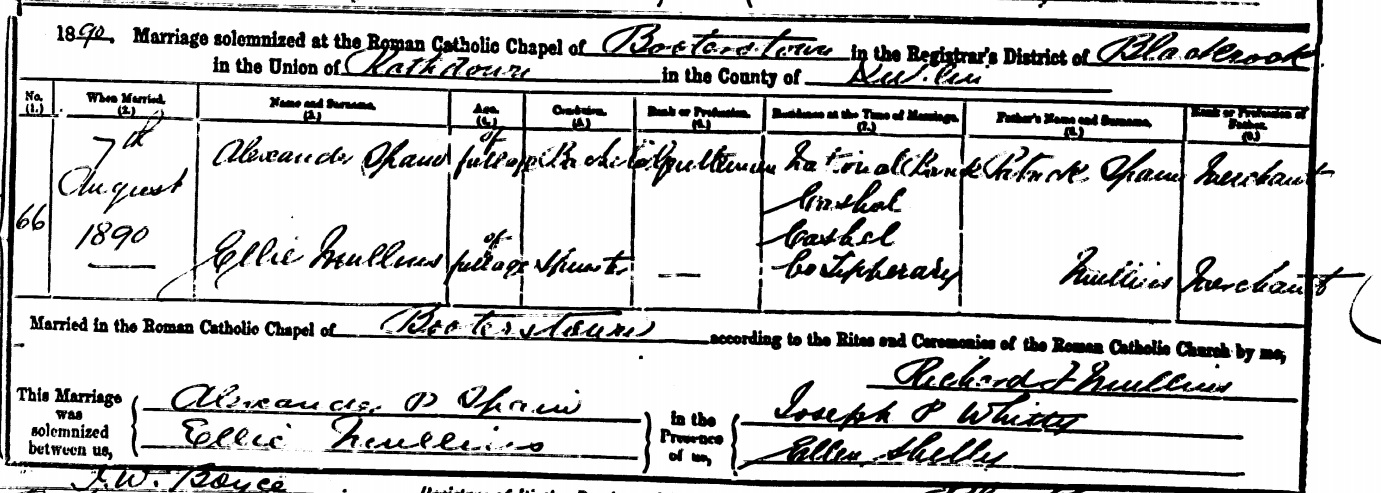 1890. Marriage solemnized at the Roman Catholic Chapel of Booterstown in the Registrar's District of Blackrock
in the Union of Rathdown in the County of Dublin
No. (1.) When Married. (2.) Name and Surname. (3.) Age. (4.) Condition. (5.) Rank or Profession. (6.) Residence at the Time of Marriage. (7.) Father's Name and Surname. (8.) Rank or Profession of Father. (9.)
66 7th August 1890
Alexander Spain of full age Bachelor Gentleman National Bank Cashel Patrick Spain Merchant
Ellie Mullins of full age Spinster — Cashel Co Tipperary Mullins Merchant
Married in the Roman Catholic Chapel of Booterstown according to the Rites and Ceremonies of the Roman Catholic Church by me,
Richard F Mullins
This Marriage was solemnized between us,
Alexander P Spain
Ellie Mullins
in the Presence of us,
Joseph P Whitty
Ellen Shelly
J.W. Boyce